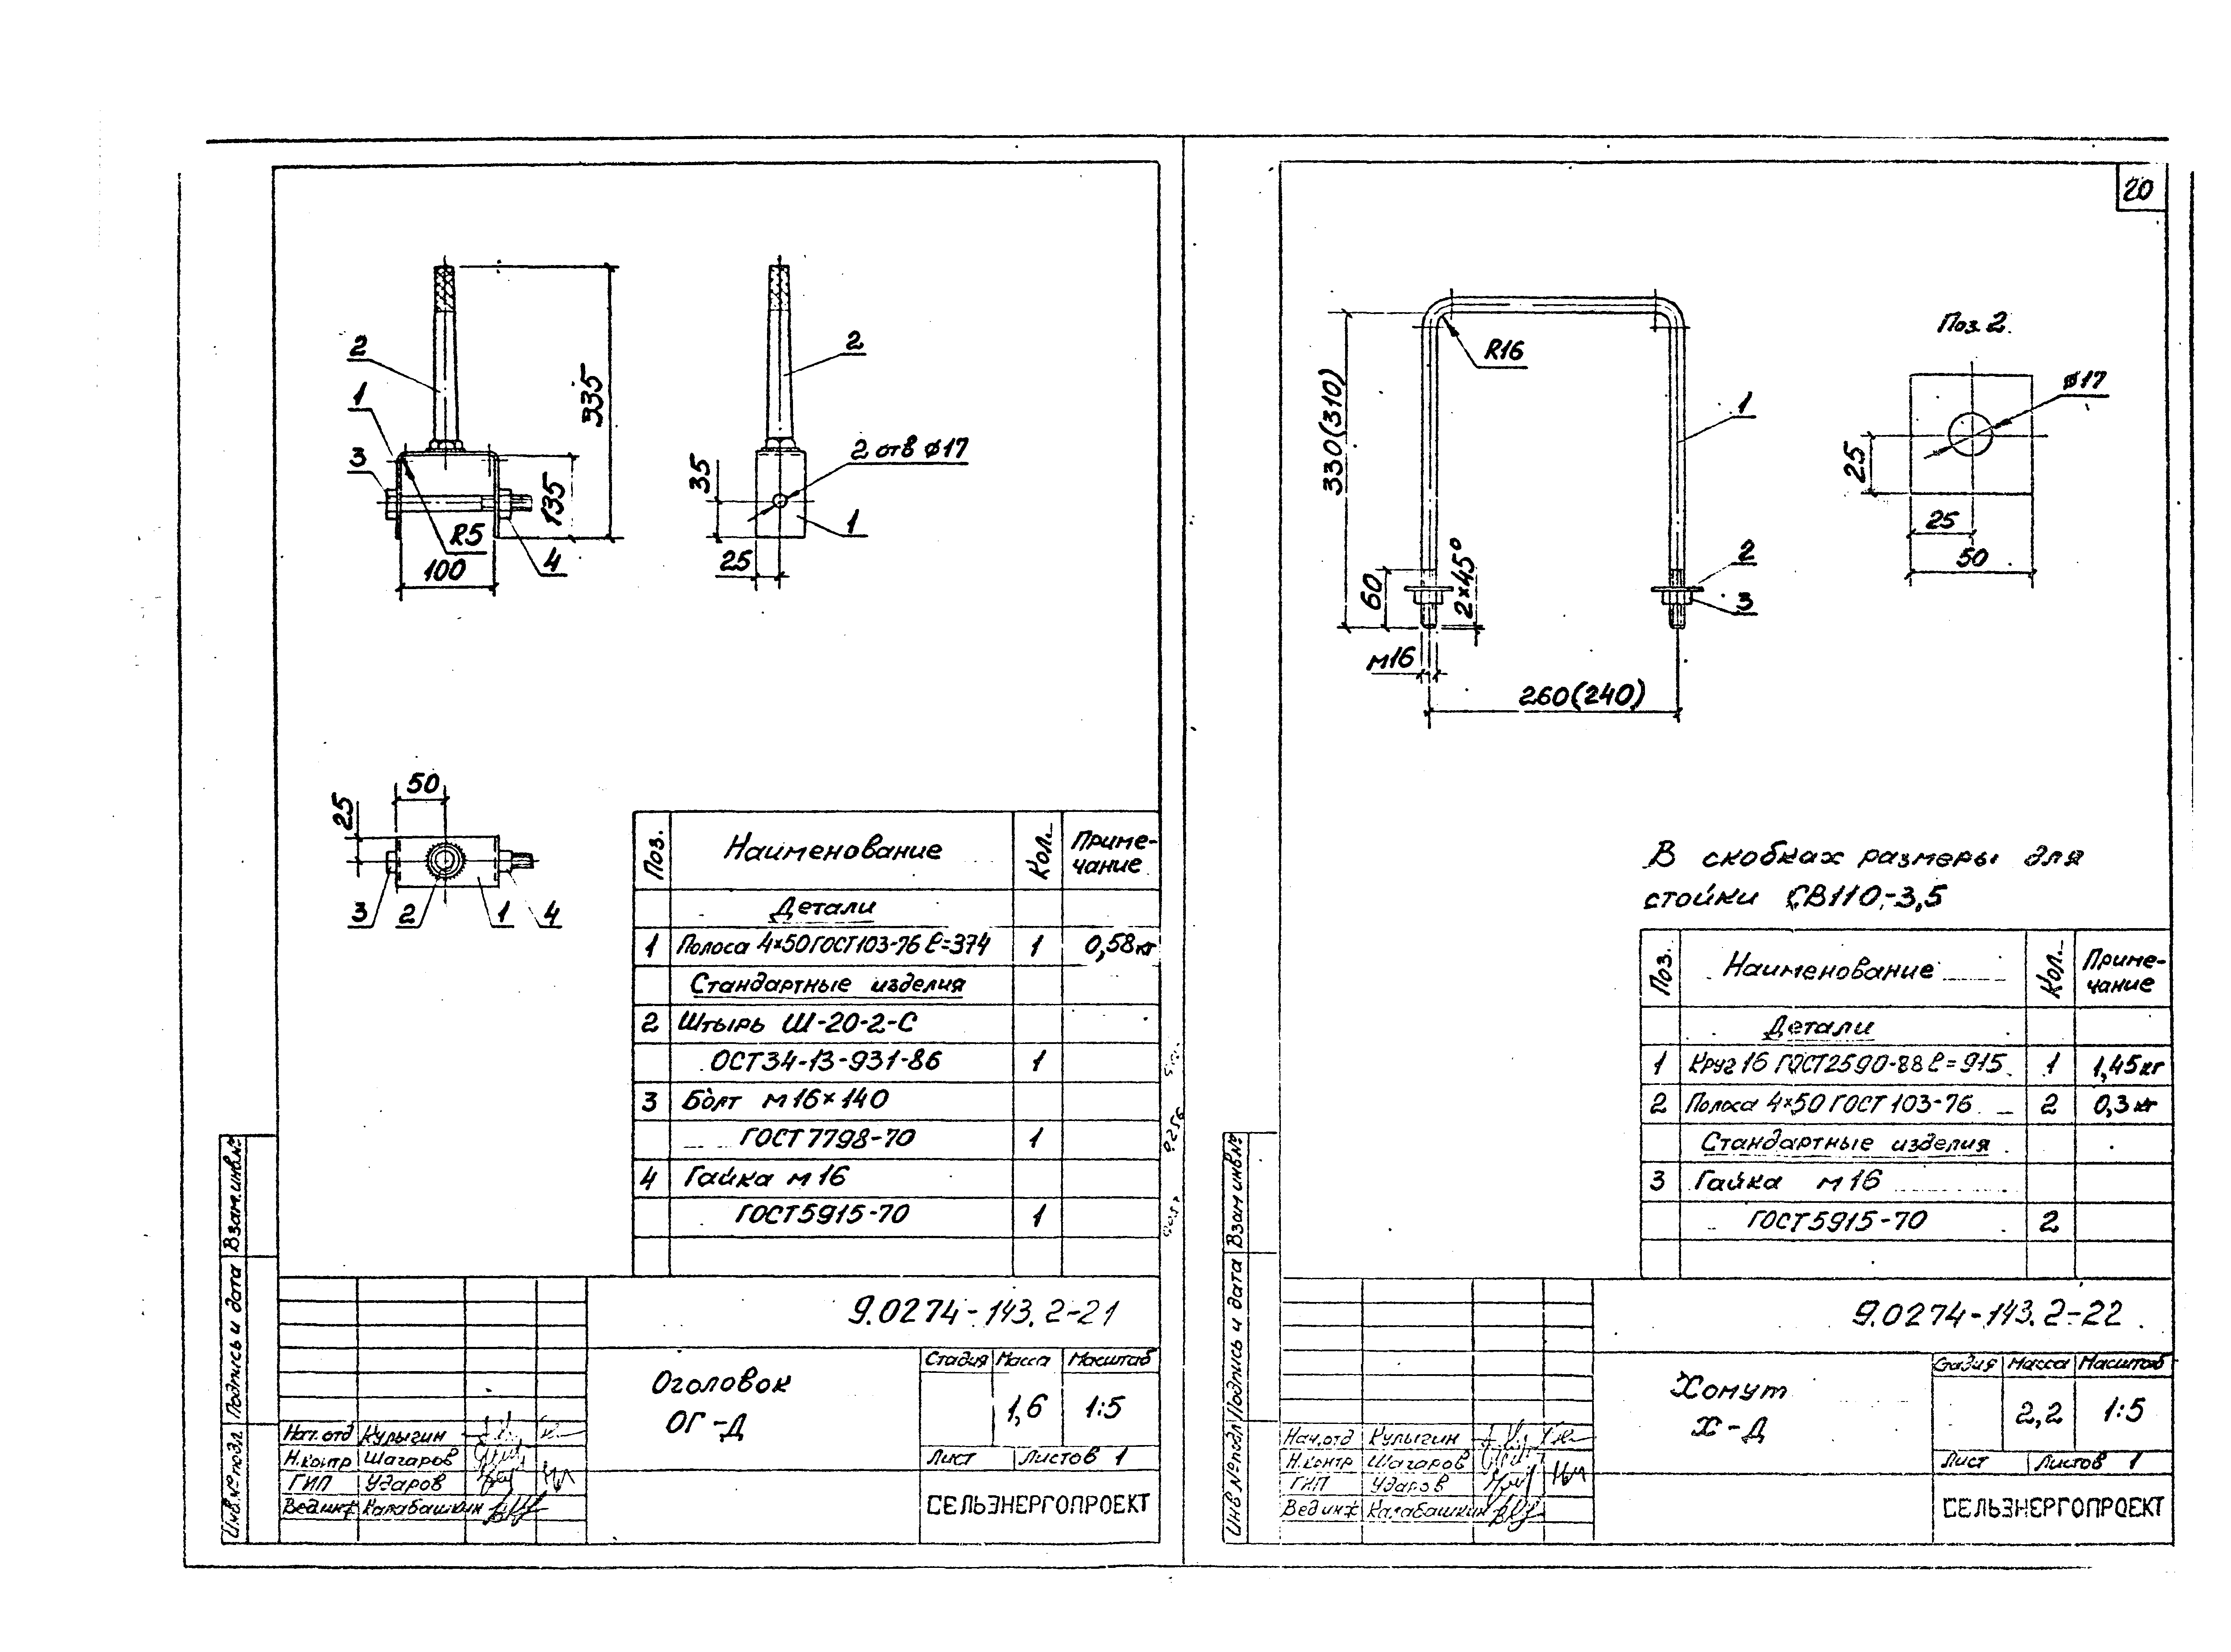 2
1
3
R5
100
4
135
335
2
2 отв ⌀17
35
1
25
50
25
3
2
1
4
Поз.
Наименование
Кол.
Приме-
чание
Детали
1 Полоса 4×50 ГОСТ 103-76 ℓ=374 1 0,58 кг
Стандартные изделия
2 Штырь Ш-20-2-С
ОСТ 34-13-931-86 1
3 Болт м16×140
ГОСТ 7798-70 1
4 Гайка м16
ГОСТ 5915-70 1
9.0274-143.2-21
Оголовок
ОГ-Д
Стадия Масса Масштаб
1,6 1:5
Лист Листов 1
СЕЛЬЭНЕРГОПРОЕКТ
Нач.отд Кулыгин
Н.контр Шагаров
ГИП Ударов
Вед инж Калабашкин
Инв.№ подл. Подпись и дата Взам.инв.№
20
R16
330(310)
1
60
2×45°
2
3
м16
260(240)
Поз. 2
⌀17
25
25
50
В скобках размеры для
стойки СВ110-3,5
Поз.
Наименование
Кол.
Приме-
чание
Детали
1 Круг 16 ГОСТ 2590-88 ℓ=915 1 1,45 кг
2 Полоса 4×50 ГОСТ 103-76 2 0,3 кг
Стандартные изделия
3 Гайка м16
ГОСТ 5915-70 2
9.0274-143.2-22
Хомут
Х-Д
Стадия Масса Масштаб
2,2 1:5
Лист Листов 1
СЕЛЬЭНЕРГОПРОЕКТ
Нач.отд Кулыгин
Н.контр Шагаров
ГИП Ударов
Вед инж Калабашкин
Инв № подл Подпись и дата Взам инв №